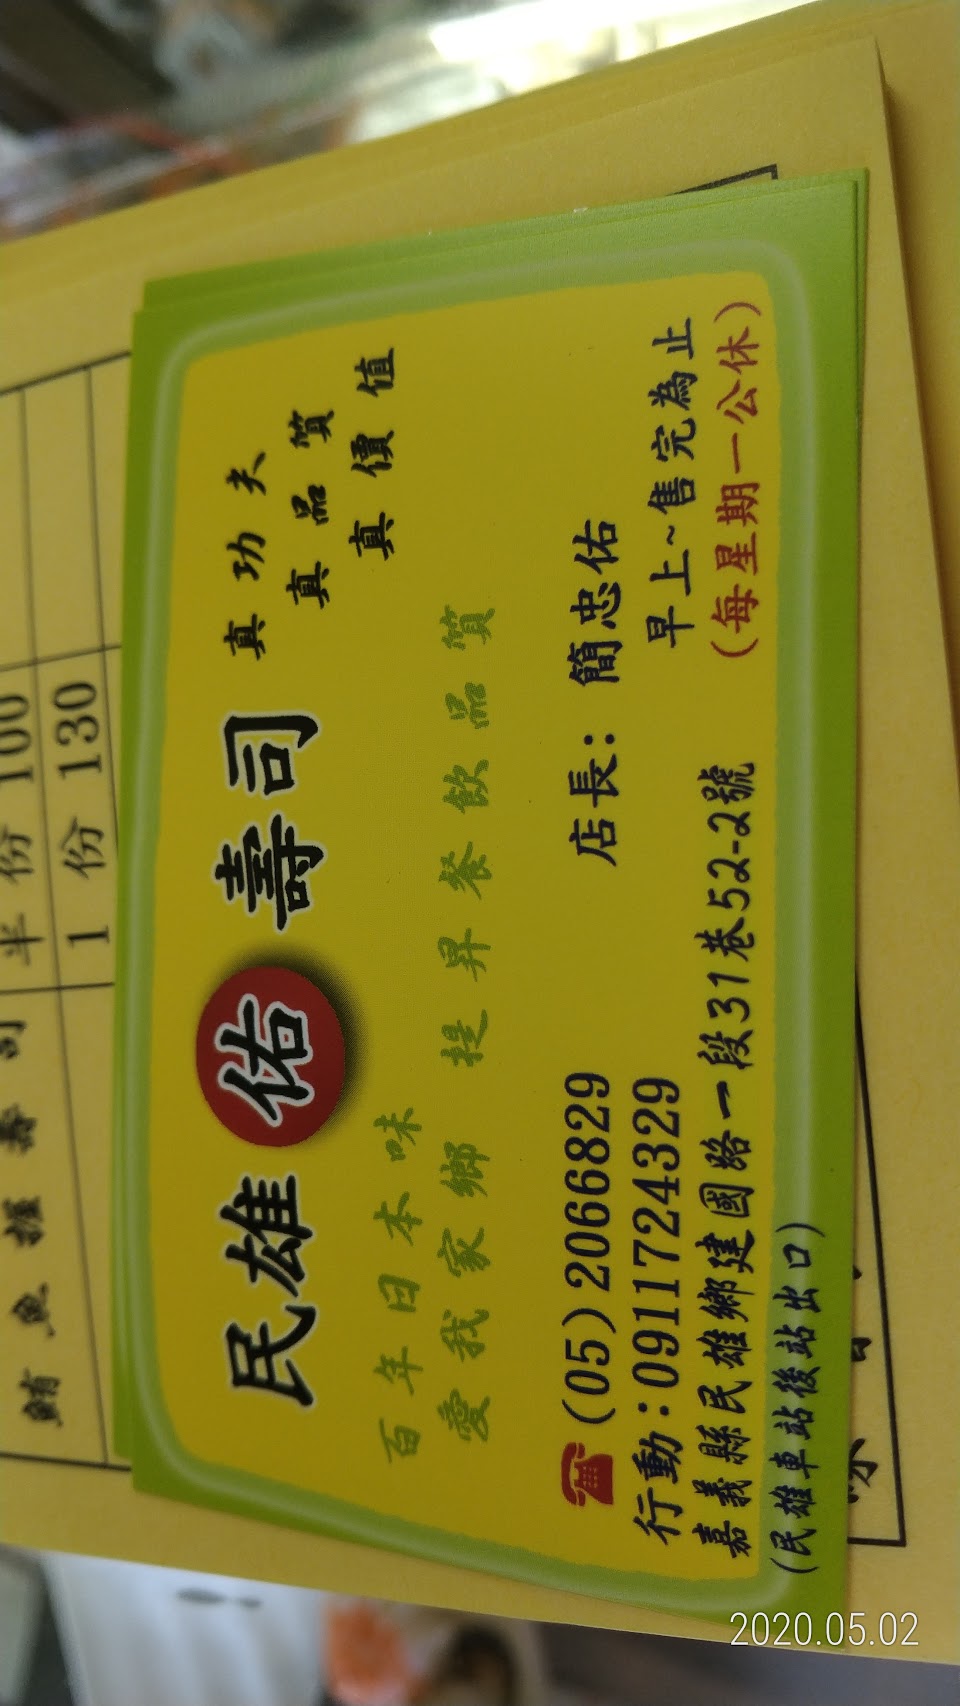 鮪魚握壽司
半份 100
1份 130
民雄佑壽司
真功夫
真品質
真價值
百年日本味
愛我家鄉 提昇餐飲品質
(05)2066829
店長：簡忠佑
行動：0911724329
早上~售完為止
嘉義縣民雄鄉建國路一段31巷52-2號
(每星期一公休)
(民雄車站後站出口)
2020.05.02